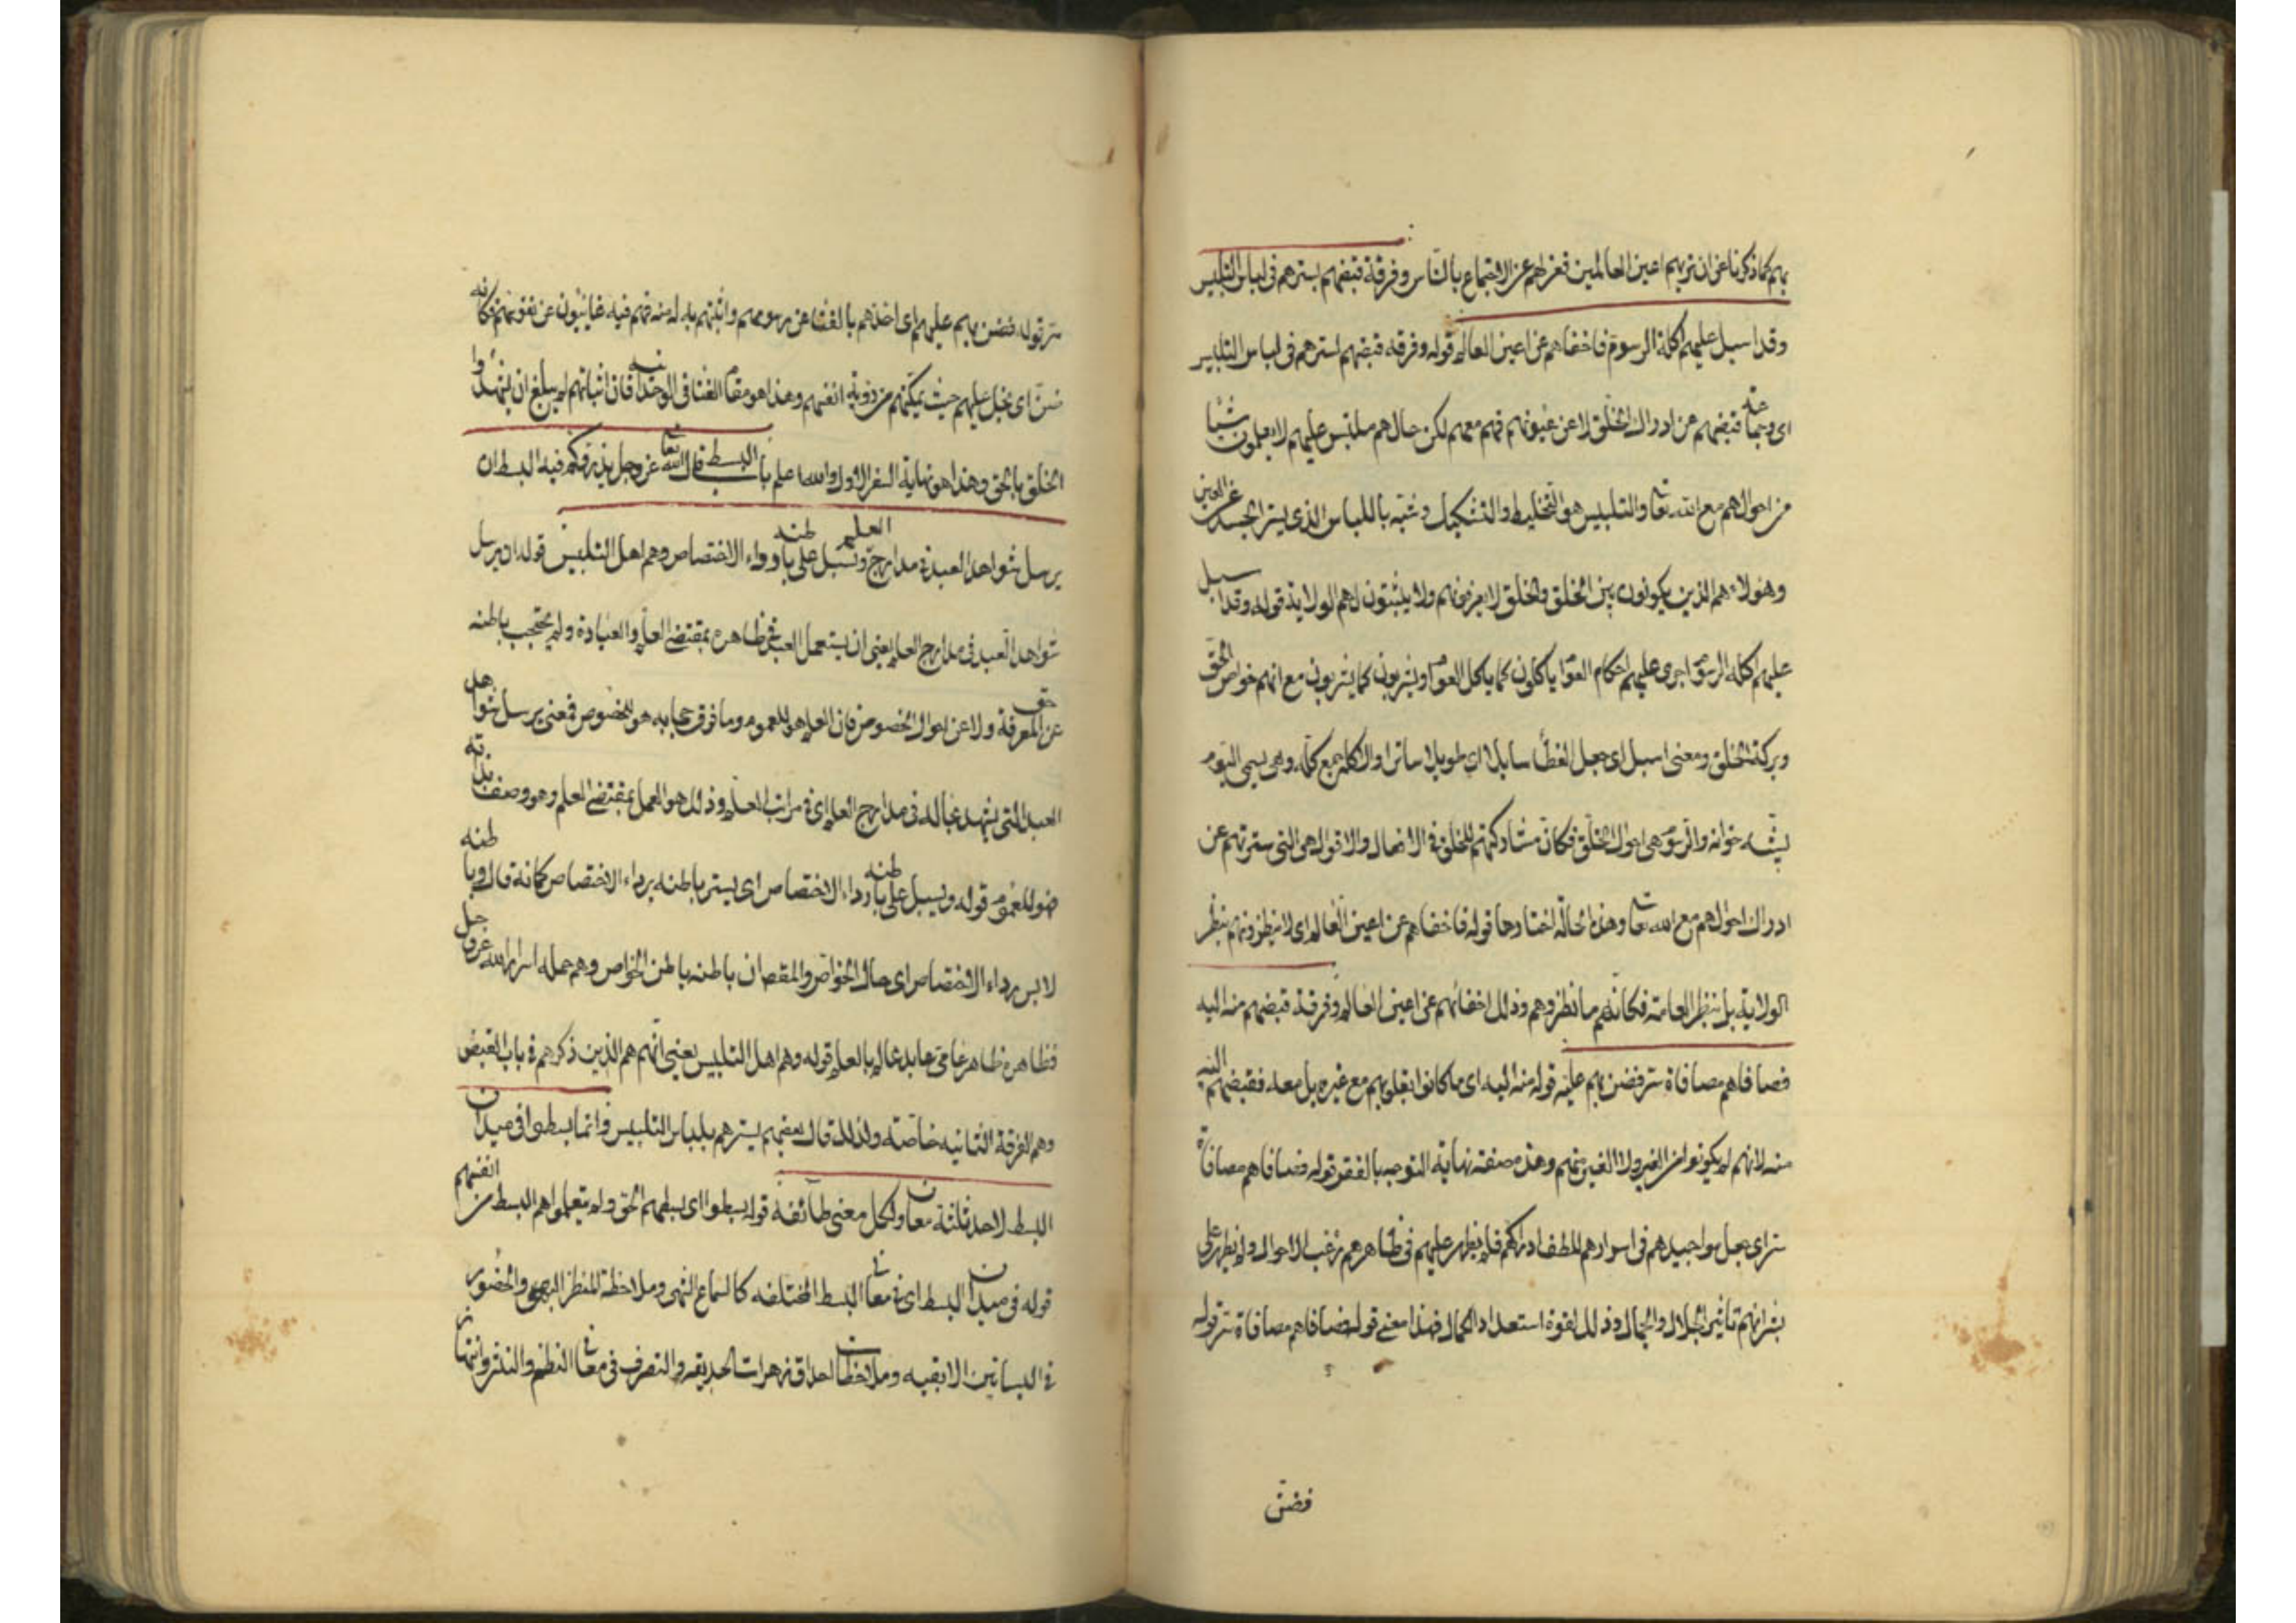 بهم كما ذكرنا عن ان تريهم اعين العالمين فعزلهم عن الاجتماع بالناس وفرقة قبضهم بسترهم فى لباس التلبيس
وقد اسبل عليهم اكلة الرسوم فاخفاهم عن اعين العالم قوله وفرقه قبضهم لسترهم فى لباس التلبيس
اى وجماعته قبضهم عن ادراك الخلق لا عن عيونهم فهم معهم لكن حالهم ملتبس عليهم لا يعلمون شيئا
من احوالهم مع الله تعا والتلبيس هو التخليط والتشكيك وشبه باللباس الذى يستر الجسد عن العين
وهولاء هم الذين يكونون بين الخلق والخلق لا يعرفونهم ولا يثبتون لهم الولاية قوله وقد اسبل
عليهم اكلة الرسوم اجرى عليهم احكام العوام ياكلون كما ياكل العوام ويشربون كما يشربون مع انهم خواص الحق
وبركة الخلق ومعنى اسبل اى جعل الغطا سابلا اى طويلا ساترا والاكلة جمع كله وهى يسمى اليوم
بشه خوانه والرسوم هى احوال الخلق فكان مشاركتهم للخلق فى الافعال والاقوال هى التى سترتهم عن
ادراك احوالهم مع الله تعا وهذه الحالة اختاروها قوله فاخفاهم عن اعين العالم اى لا ينظرونهم بنظر
الولاية بل بنظر العامة فكانهم ما نظروهم وذلك اخفائهم عن اعين العالم وفرقة قبضهم منه اليه
فصافاهم مصافاة سر فضن بهم عليه قوله منه اليه اى ما كانوا بقلوبهم مع غيره بل معه فقبضهم اليه
منه لانهم لم يكونوا مع الغير ولا الغير معهم وهذه صفة نهاية التوجه بالفقر قوله فصافاهم مصافاة
سر اى جعل مواجيدهم فى اسرارهم للطف ادراكهم فلم يظهر عليهم فى ظاهرهم رغب الاحوال ولم يظهر على
بشراتهم تاثير الجلال والجمال وذلك لقوة استعداد الكمال فهذا معنى قوله فصافاهم مصافاة سر قوله
فضن
سر قوله فضن بهم عليهم اى اخذهم بالفنا عن رسومهم واثبتهم به له منه فهم فيه غايبون عن نفوسهم فكانه
ضن اى بخل عليهم حيث يمكنهم من رؤية انفسهم وهذا هو مقام الفنا فى الوحدانيه فان اثباتهم لم يبلغ ان يشهدوا
الخلق بالحق وهذا هو نهاية السفر الاول والله اعلم باب البسط قال الله تعا عز وجل يذرؤكم فيه البسط ان
يرسل شواهد العبد فى مدارج العلم ويسبل على باطنه رداء الاختصاص وهم اهل التلبيس قوله ان يرسل
شواهد العبد فى مدارج العلم يعنى ان يستعمل العبد فى ظاهره بمقتضى العلم والعبادة ولم يحتجب باطنه
عن المعرفة ولا عن احوال الخصوص فان العلم هو للعموم وما فوق حجابه هو للخصوص فمعنى يرسل شواهد
العبد التى يشهد عباله فى مدارج العلم اى فى مراتب العلم وذلك هو العمل بمقتضى العلم وهو وصف بذاته
فهو للعموم قوله ويسبل على باطنه رداء الاختصاص اى يستر باطنه برداء الاختصاص كانه قال وباطنه
لابس رداء الاختصاص اى حال الخواص والمقصد ان باطنه باطن الخواص وهم حملة اسرار الله عز وجل
فظاهره ظاهر عامى عابد عالم بالعلم قوله وهم اهل التلبيس يعنى انهم هم الذين ذكرهم فى باب القبض
وهم الفرقة الثانيه خاصة ولذلك قال بعضهم يسترهم بلباس التلبيس وانما بسطوا فى ميدان
البسط لاحد ثلثة معان ولكل معنى طائفة قوله بسطوا اى بسطهم الحق ولم يتعلموا هم البسط من انفسهم
قوله فى ميدان البسط اى فى معانى البسط المختلفه كالسماع الشهى وملاحظة المنظر البهى والحضور
فى البساتين الانيقيه وملاحظات احداق زهرات الحديقه والتصرف فى معانى النظم والنثر وانتهاز